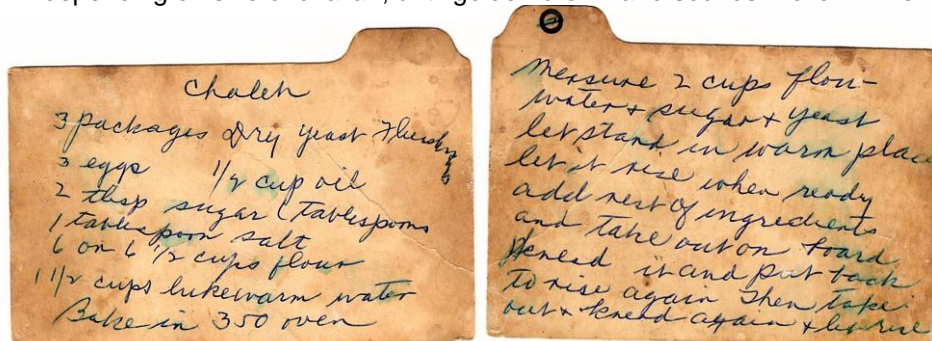 Chaleh
3 packages Dry Yeast
3 eggs 1/2 cup oil
2 tbsp sugar (tablespoons
1 tablespoon salt
6 or 6 1/2 cups flour
1 1/2 cups lukewarm water
Bake in 350 oven
Measure 2 cups flour
water + sugar + yeast
let stand in warm place
let it rise when ready
add rest of ingredients
and take out on board
knead it and put back
to rise again then take
out + knead again + let rise